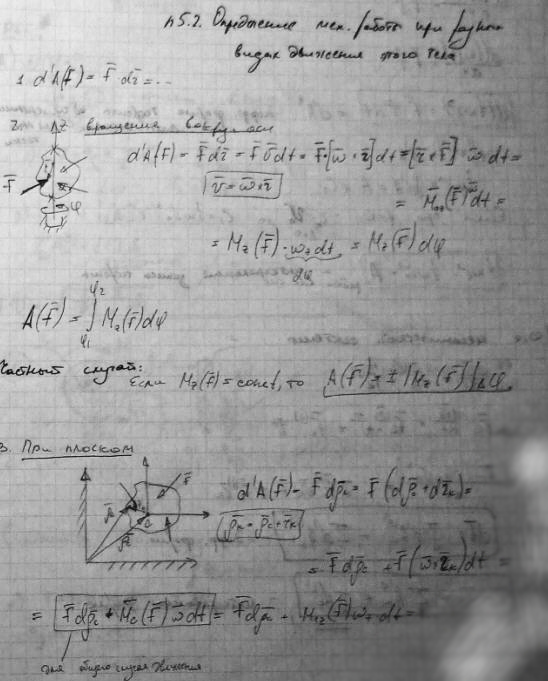 п5.2. Определение мех. работы при разных
видах движения этого тела
1. d'A(F̄) = F̄ dr̄ = ...
вращения вокруг оси
d'A(F̄) = F̄ dr̄ = F̄ v̄ dt = F̄·[ω̄ × r̄] dt = [r̄ × F̄]·ω̄ dt =
v̄ = ω̄ × r̄
z
F̄
φ
= M̄ (F̄) ω̄ dt =
= M_z(F̄)·ω_z dt = M_z(F̄) dφ
dφ
A(F̄) = ∫_{φ1}^{φ2} M_z(F̄) dφ
Частный случай:
Если M_z(F̄) = const, то A(F̄) = ± |M_z(F̄)| Δφ
3. При плоском
F̄
d'A(F̄) = F̄ dρ̄_k = F̄ (dρ̄_c + dr̄_k) =
ρ̄_k = ρ̄_c + r̄_k
= F̄ dρ̄_c + F̄ (ω̄ × r̄_k) dt =
= F̄ dρ̄_c + M̄_c(F̄) ω̄ dt = F̄ dρ̄_c + M_cz(F̄) ω_z dt =
для общего случая движения